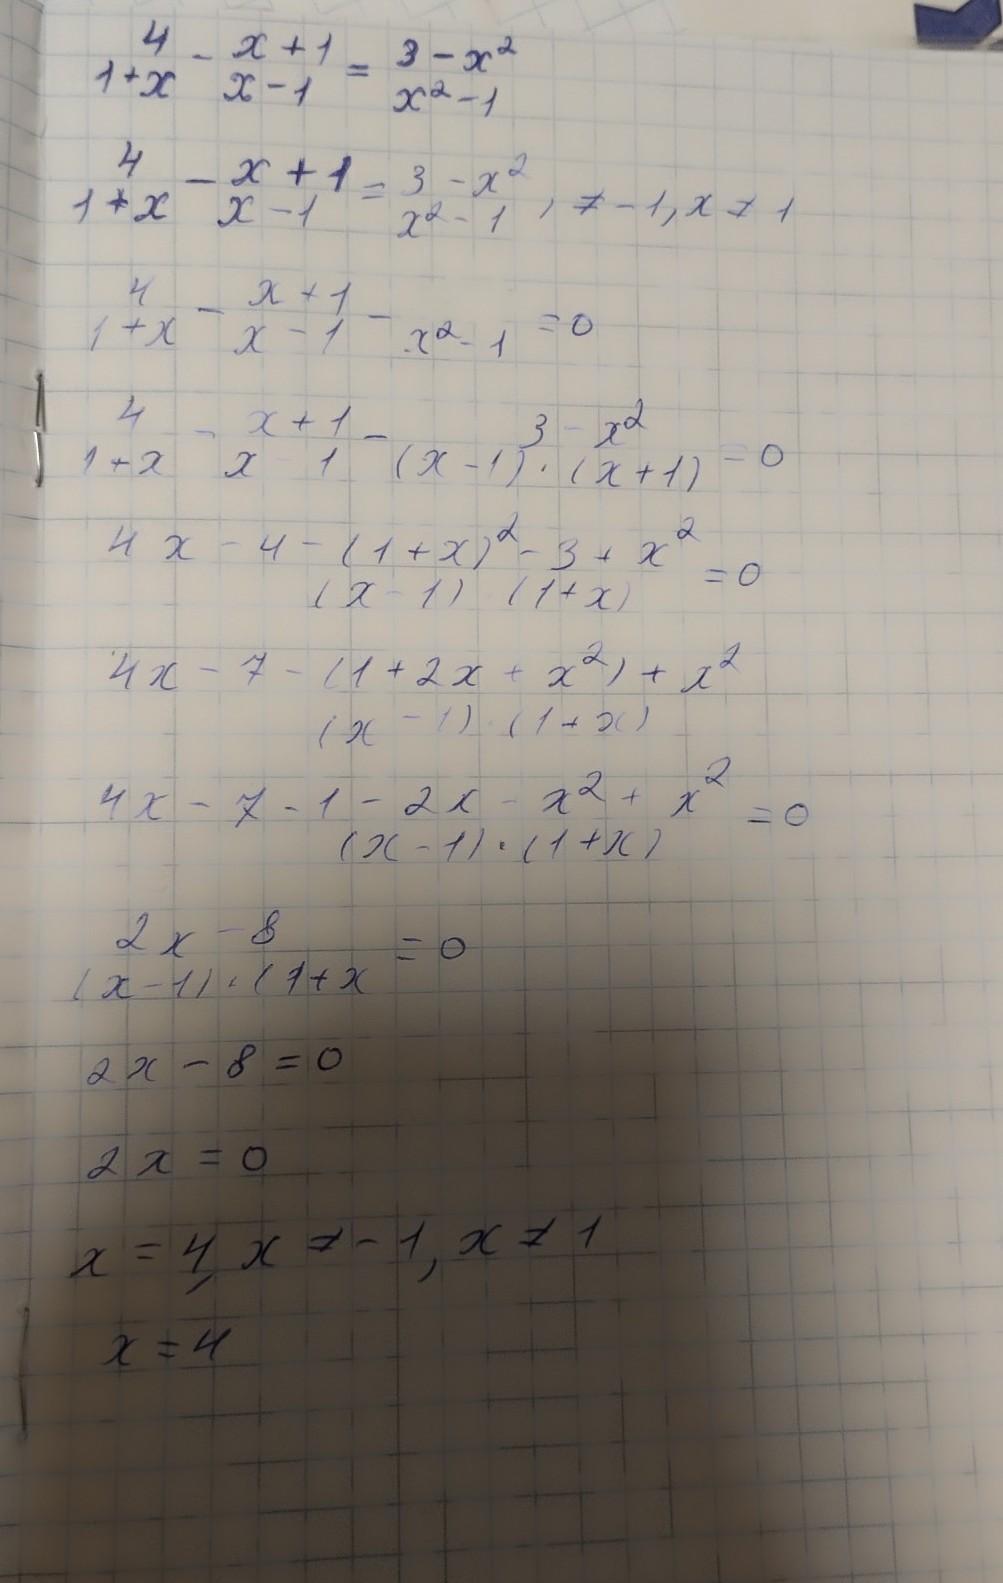 4/(1+x) - (x+1)/(x-1) = (3-x²)/(x²-1)
4/(1+x) - (x+1)/(x-1) = (3-x²)/(x²-1), ≠-1, x≠1
4/(1+x) - (x+1)/(x-1) - /(x²-1) = 0
4/(1+x) - (x+1)/(x-1) - (3-x²)/((x-1)·(x+1)) = 0
(4x-4-(1+x)²-3+x²)/((x-1) (1+x)) = 0
(4x-7-(1+2x+x²)+x²)/((x-1)·(1+x))
(4x-7-1-2x-x²+x²)/((x-1)·(1+x)) = 0
(2x-8)/((x-1)·(1+x) = 0
2x-8=0
2x=0
x=4, x≠-1, x≠1
x=4